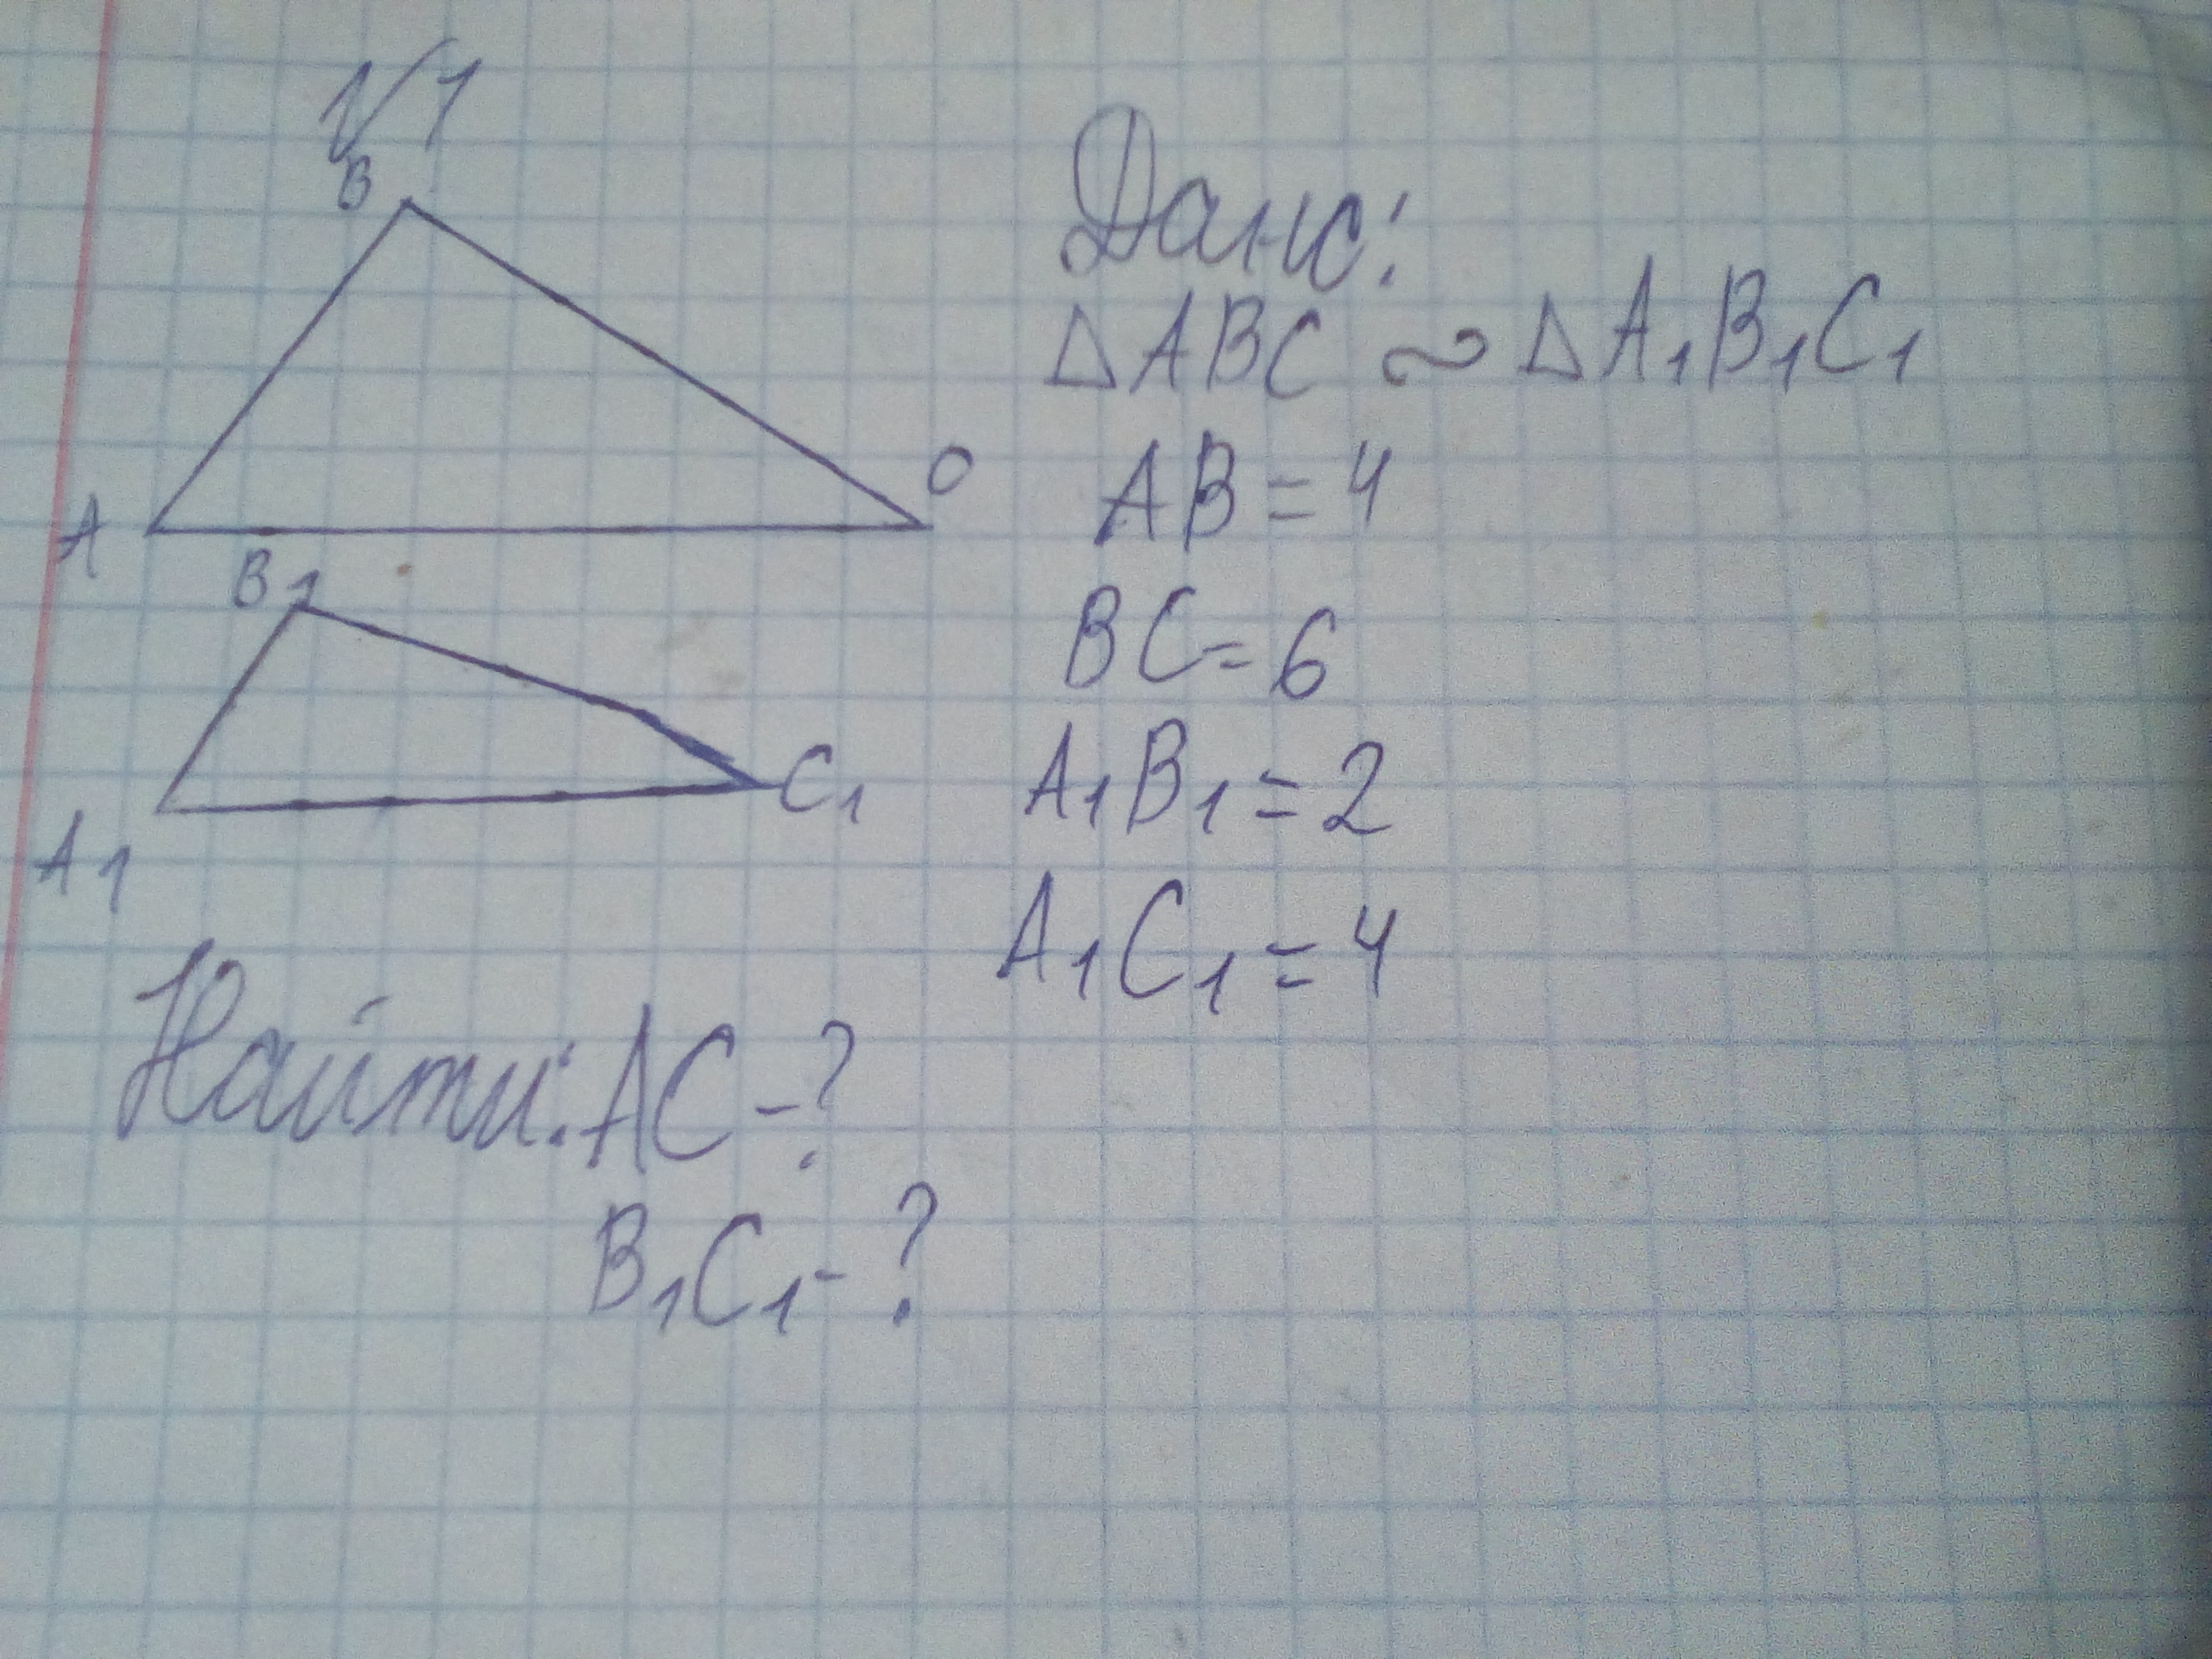 №1
B
A
O
B1
A1
C1
Дано:
△ABC ∾ △A1B1C1
AB=4
BC=6
A1B1=2
A1C1=4
Найти: AC-?
B1C1-?